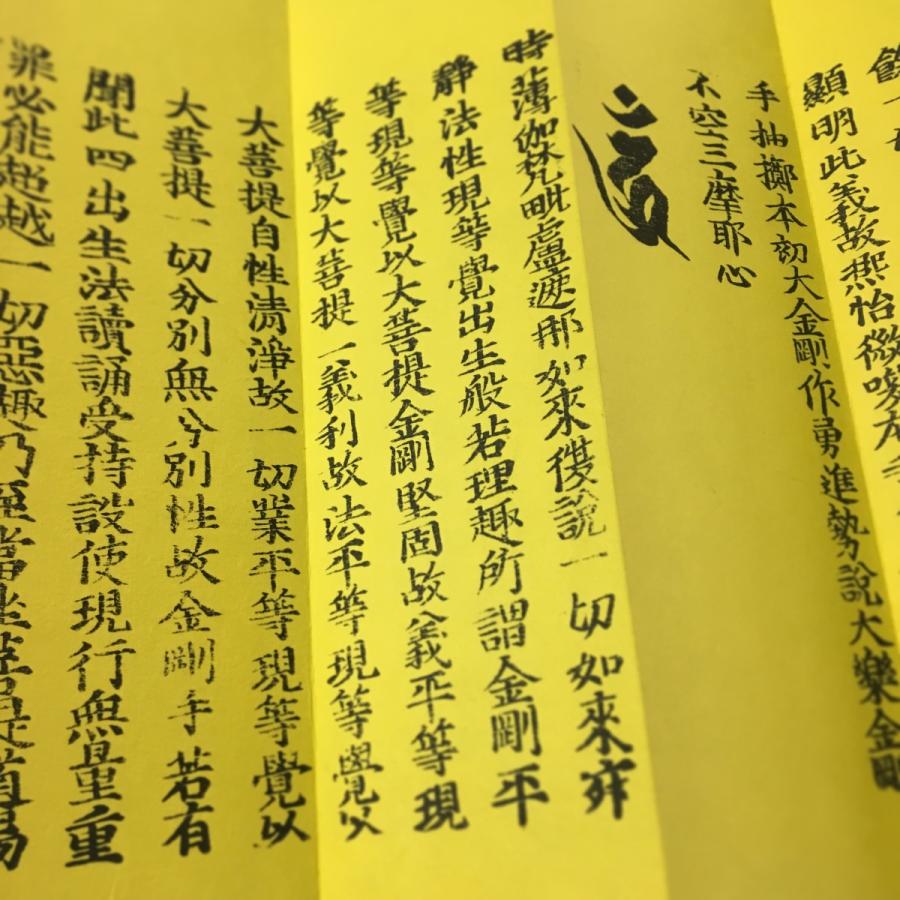 顯明此義故熙怡微咲左手
手抽擲本初大金剛作勇進勢說大樂金剛
不空三摩耶心
時薄伽梵毗盧遮那如來復說一切如來寂
靜法性現等覺出生般若理趣所謂金剛平
等現等覺以大菩提金剛堅固故義平等現
等覺以大菩提一義利故法平等現等覺以
大菩提自性清淨故一切業平等現等覺以
大菩提一切分別無分別性故金剛手若有
聞此四出生法讀誦受持設使現行無量重
罪必能超越一切惡趣乃至當坐菩提道場